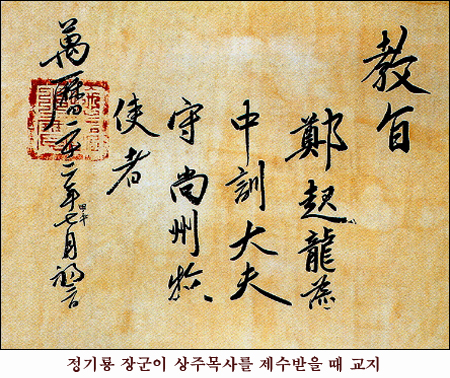 教旨
鄭起龍爲
中訓大夫
守尚州牧
使者
萬曆二十二年甲午七月初日
정기룡 장군이 상주목사를 제수받을 때 교지